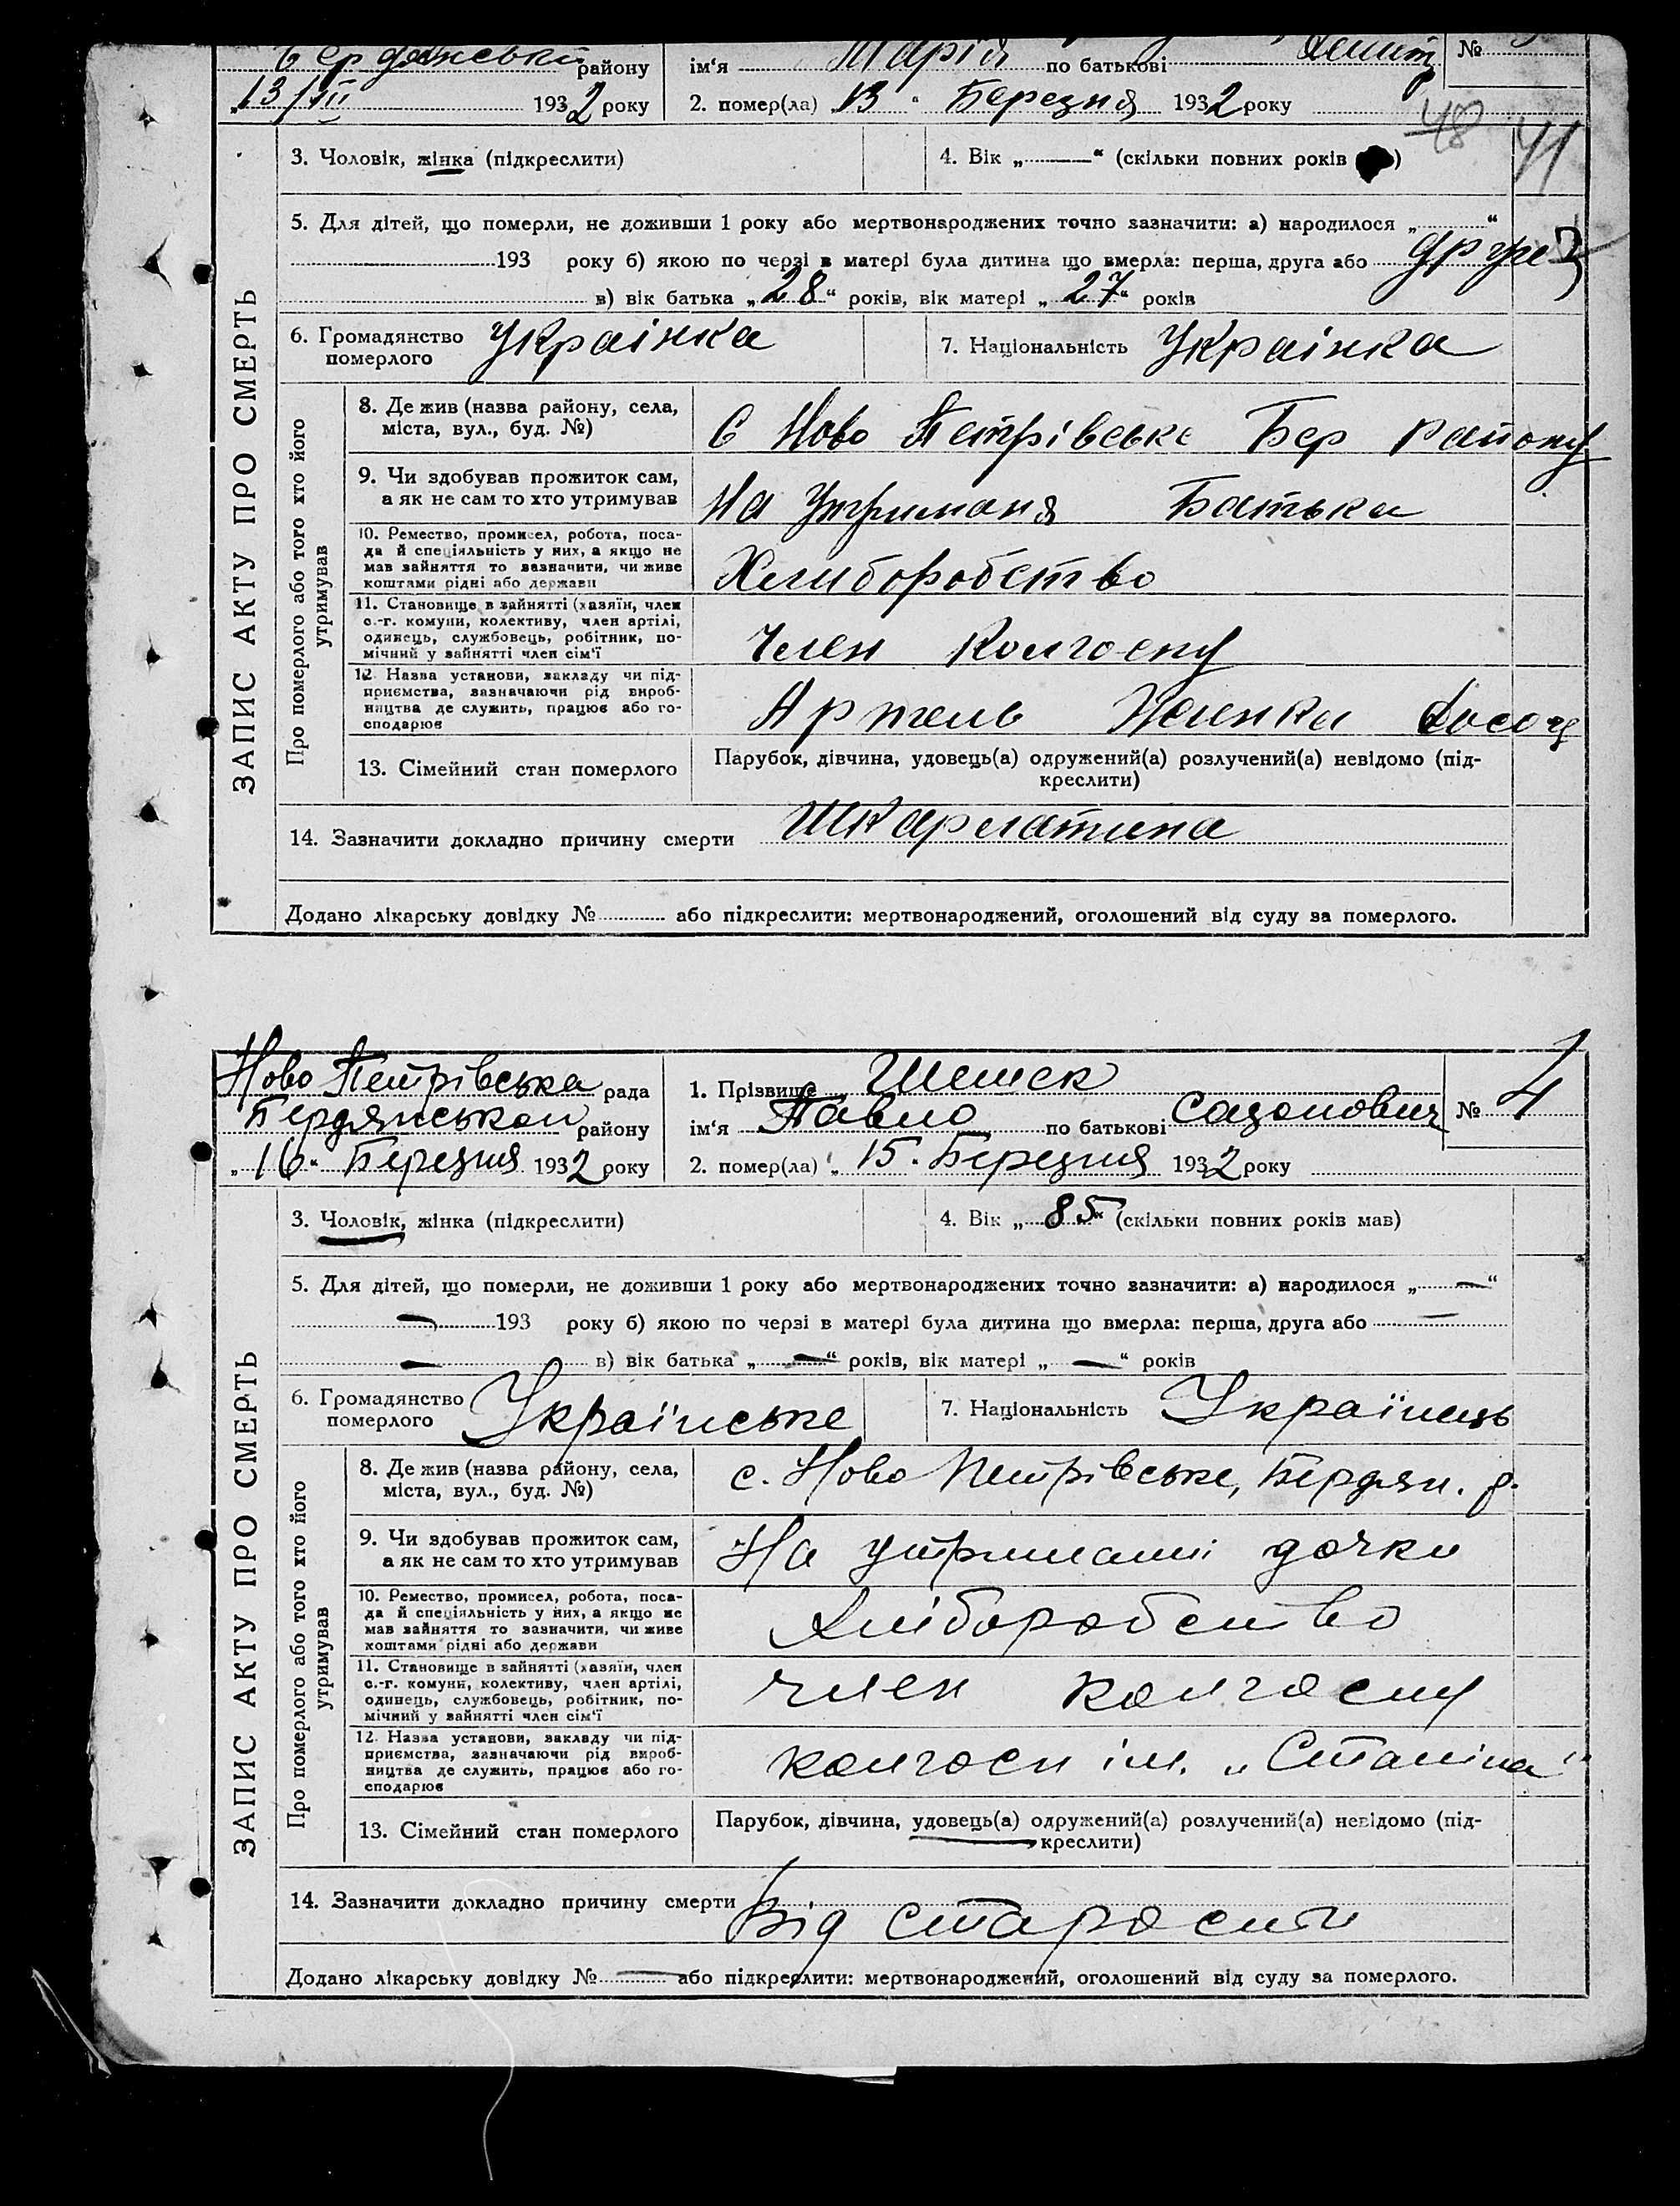 Бердянськи району ім'я Марія по батькові №
„13/III 1932 року 2. помер(ла) 13 “ Березня 1932 року
48
41
3. Чоловік, жінка (підкреслити) 4. Вік „ “ (скільки повних років )
5. Для дітей, що померли, не доживши 1 року або мертвонароджених точно зазначити: а) народилося „ “
193 року б) якою по черзі в матері була дитина що вмерла: перша, друга або
в) вік батька „28“ років, вік матері „27“ років
6. Громадянство померлого Украінка 7. Національність Украінка
ЗАПИС АКТУ ПРО СМЕРТЬ
Про померлого або того хто його утримував
8. Де жив (назва району, села,
міста, вул., буд. №)
С Ново Петрівське Бер району
9. Чи здобував прожиток сам,
а як не сам то хто утримував
На утриманя Батька
10. Ремество, промисел, робота, поса-
да й спеціяльність у них, а якщо не
мав зайняття то зазначити, чи живе
коштами рідні або держави
Хлиборобство
11. Становище в зайнятті (хазяїн, член
с.-г. комуни, колективу, член артілі,
одинець, службовець, робітник, по-
мічний у зайнятті член сім'ї
Член Колгоспу
12. Назва установи, закладу чи під-
приємства, зазначаючи рід вироб-
ництва де служить, працює або го-
сподарює
Артель
13. Сімейний стан померлого
Парубок, дівчина, удовець(а) одружений(а) розлучений(а) невідомо (під-
креслити)
14. Зазначити докладно причину смерти Шкарлатина
Додано лікарську довідку № або підкреслити: мертвонароджений, оголошений від суду за померлого.
Ново Петрівська рада 1. Прізвище Шешек
Бердянськои району ім'я Павло по батькові Сазонович № 4
„16“ Березня 1932 року 2. помер(ла) „15. Березня 1932 року
3. Чоловік, жінка (підкреслити) 4. Вік „85“ (скільки повних років мав)
5. Для дітей, що померли, не доживши 1 року або мертвонароджених точно зазначити: а) народилося „—“
— 193 року б) якою по черзі в матері була дитина що вмерла: перша, друга або —
— в) вік батька „—“ років, вік матері „—“ років
6. Громадянство померлого Українське 7. Національність Українець
ЗАПИС АКТУ ПРО СМЕРТЬ
Про померлого або того хто його утримував
8. Де жив (назва району, села,
міста, вул., буд. №)
с. Ново Петрівське, Бердян. р.
9. Чи здобував прожиток сам,
а як не сам то хто утримував
На утриманні дочки
10. Ремество, промисел, робота, поса-
да й спеціяльність у них, а якщо не
мав зайняття то зазначити, чи живе
коштами рідні або держави
Хліборобство
11. Становище в зайнятті (хазяїн, член
с.-г. комуни, колективу, член артілі,
одинець, службовець, робітник, по-
мічний у зайнятті член сім'ї
член колгоспу
12. Назва установи, закладу чи під-
приємства, зазначаючи рід вироб-
ництва де служить, працює або го-
сподарює
колгосп ім. „Сталіна“
13. Сімейний стан померлого
Парубок, дівчина, удовець(а) одружений(а) розлучений(а) невідомо (під-
креслити)
14. Зазначити докладно причину смерти Від старости
Додано лікарську довідку № — або підкреслити: мертвонароджений, оголошений від суду за померлого.